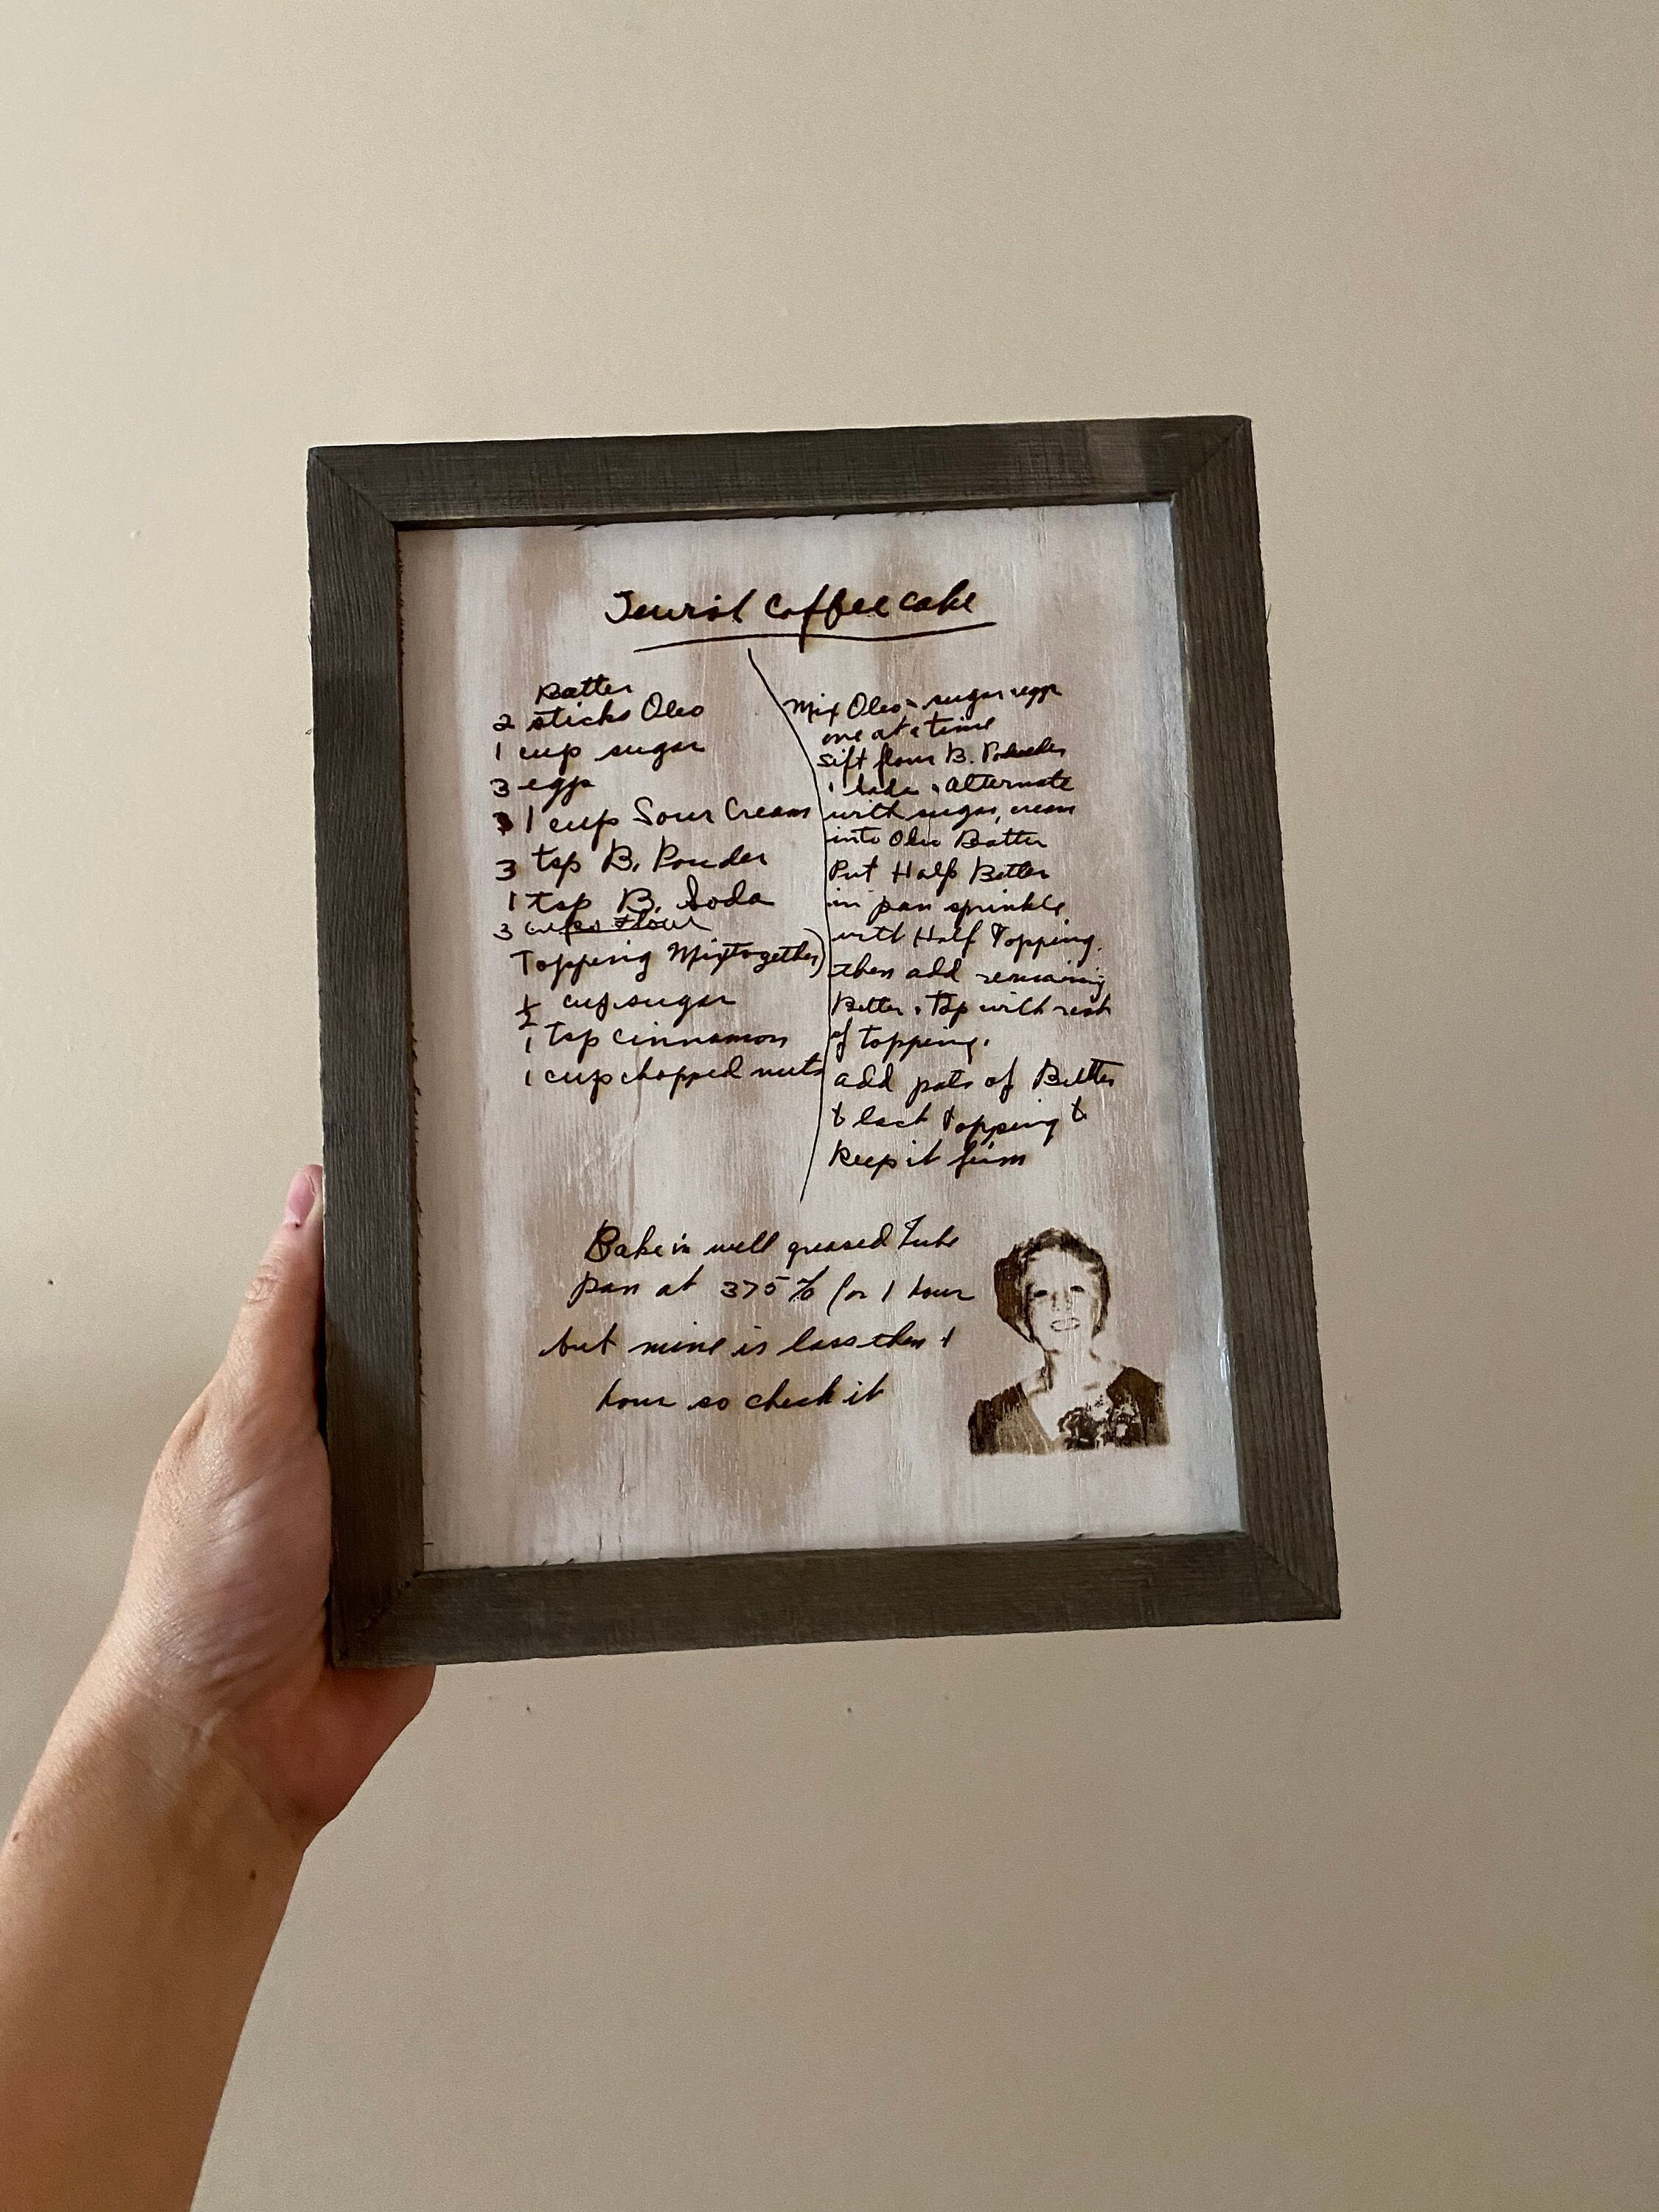 Jewish Coffee cake
Batter
2 sticks Oleo
1 cup sugar
3 eggs
1 cup Sour Cream
3 tsp B. Powder
1 tsp B. Soda
3 cups Flour
Topping Mix together)
1/2 cup sugar
1 tsp cinnamon
1 cup chopped nuts
Mix Oleo & sugar eggs
one at a time
Sift flour B. Powder
& soda & alternate
with sugar, cream
into Oleo Batter
Put Half Batter
in pan sprinkle
with Half Topping.
then add remaining
Batter & Top with rest
of topping.
add pats of Butter
to last topping to
keep it firm
Bake in well greased Tube
pan at 375% for 1 hour
but mine is less then 1
hour so check it